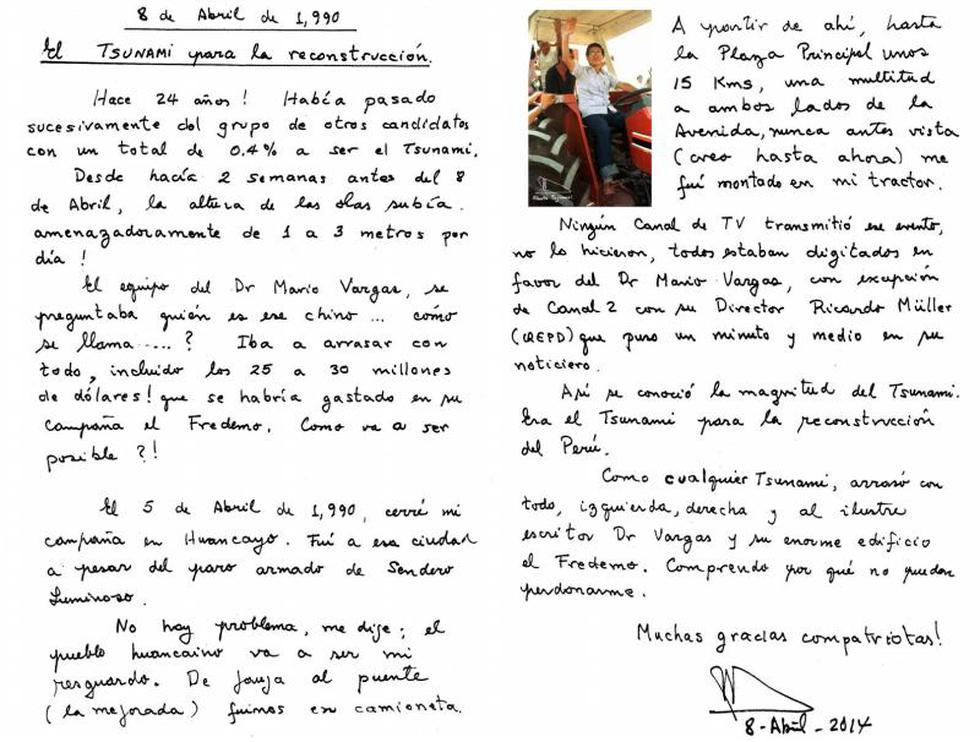 8 de Abril de 1,990
El TSUNAMI para la reconstrucción.
Hace 24 años! Había pasado
sucesivamente del grupo de otros candidatos
con un total de 0.4% a ser el Tsunami.
Desde hacía 2 semanas antes del 8
de Abril, la altura de las olas subía
amenazadoramente de 1 a 3 metros por
día!
El equipo del Dr Mario Vargas, se
preguntaba quién es ese chino ... cómo
se llama .....? Iba a arrasar con
todo, incluido los 25 a 30 millones
de dólares! que se habría gastado en su
campaña el Fredemo. Como va a ser
posible ?!
El 5 de Abril de 1,990, cerré mi
campaña en Huancayo. Fuí a esa ciudad
a pesar del paro armado de Sendero
Luminoso.
No hay problema, me dije; el
pueblo huancaino va a ser mi
resguardo. De Jauja al puente
(la mejorada) fuimos en camioneta.
A partir de ahí, hasta
la Plaza Principal unos
15 Kms, una multitud
a ambos lados de la
Avenida, nunca antes vista
(creo hasta ahora) me
fuí montado en mi tractor.
Ningún Canal de TV transmitió ese evento,
no lo hicieron, todos estaban digitados en
favor del Dr Mario Vargas, con excepción
de Canal 2 con su Director Ricardo Müller
(QEPD) que puso un minuto y medio en su
noticiero.
Así se conoció la magnitud del Tsunami.
Era el Tsunami para la reconstrucción
del Perú.
Como cualquier Tsunami, arrasó con
todo, izquierda, derecha y al ilustre
escritor Dr Vargas y su enorme edificio
el Fredemo. Comprendo por qué no puedan
perdonarme.
Muchas gracias compatriotas!
8-Abril-2014